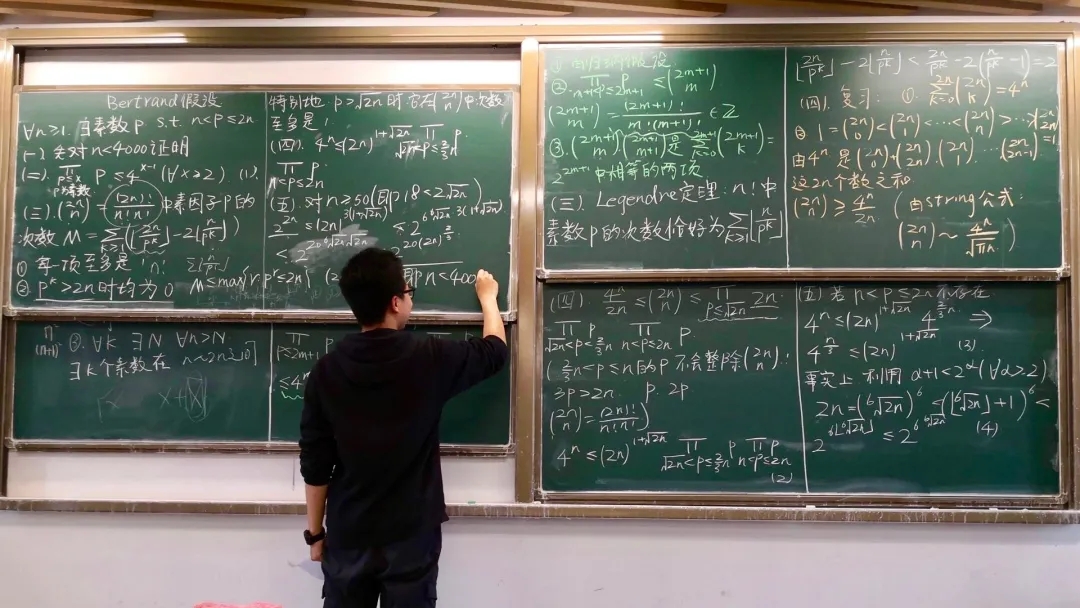 Bertrand 假设
∀n≥1. ∃素数 p s.t. n<p≤2n
(一) 先对 n<4000 证明
(二). ∏_{p≤x, p为素数} p ≤ 4^{x-1} (∀x≥2) (1).
(三). (2n n) = (2n)!/(n!n!) 中素因子 p 的
次数 M = Σ_{k≥1} (⌊2n/p^k⌋ - 2⌊n/p^k⌋)
① 每一项至多是 1
② p^k>2n 时均为 0
特别地. p>√2n 时
至多是 1
(四). 4^n ≤ (2n)^{1+√2n} ∏_{√2n<p≤2/3n} p.
∏_{n<p≤2n} p.
(五). 对 n≥50 (即 18<2√2n)
即 n<400
④. ∀k ∃N ∀n>N.
∃k个素数在
∏_{p≤2m+1} p
≤4^m
②. ∏_{m+1<p≤2m+1} p ≤ (2m+1 m)
(2m+1 m) = (2m+1)!/(m!(m+1)!) ∈ ℤ
③. (2m+1 m) (2m+1 m+1) 是 Σ_{k=0}^{2m+1} (2m+1 k) =
2^{2m+1} 中相等的两项
(三). Legendre 定理: n! 中
素数 p 的次数恰好为 Σ_{k≥1} ⌊n/p^k⌋
⌊2n/p^k⌋ - 2⌊n/p^k⌋ < 2n/p^k - 2(n/p^k - 1) = 2
(四). 复习: ①. Σ_{k=0}^{2n} (2n k) = 4^n
② 1 = (2n 0) < (2n 1) < ⋯ < (2n n) > ⋯ > (2n 2n) = 1
由 4^n 是 (2n 0)+(2n 2n), (2n 1), ⋯ (2n 2n-1)
这 2n 个数之和
(2n n) ≥ 4^n/2n (由 string 公式:
(2n n) ~ 4^n/√πn)
(四). 4^n/2n ≤ (2n n) ≤ ∏_{p≤√2n} 2n.
∏_{√2n<p≤2/3n} p ∏_{n<p≤2n} p.
(2/3n<p≤n 的 p 不会整除 (2n n):
3p>2n. p. 2p
(2n n) = (2n)!/(n!n!))
4^n ≤ (2n)^{1+√2n} ∏_{√2n<p≤2/3n} p ∏_{n<p≤2n} p
(2)
(五) 若 n<p≤2n 不存在
4^n ≤ (2n)^{1+√2n} 4^{2/3n} ⇒
4^{n/3} ≤ (2n)^{1+√2n} (3)
事实上 利用 a+1<2^a (∀a≥2)
2n = (⁶√2n)^6 ≤ (⌊⁶√2n⌋+1)^6 <
2^{6⌊⁶√2n⌋} ≤ 2^{6 ⁶√2n} (4)